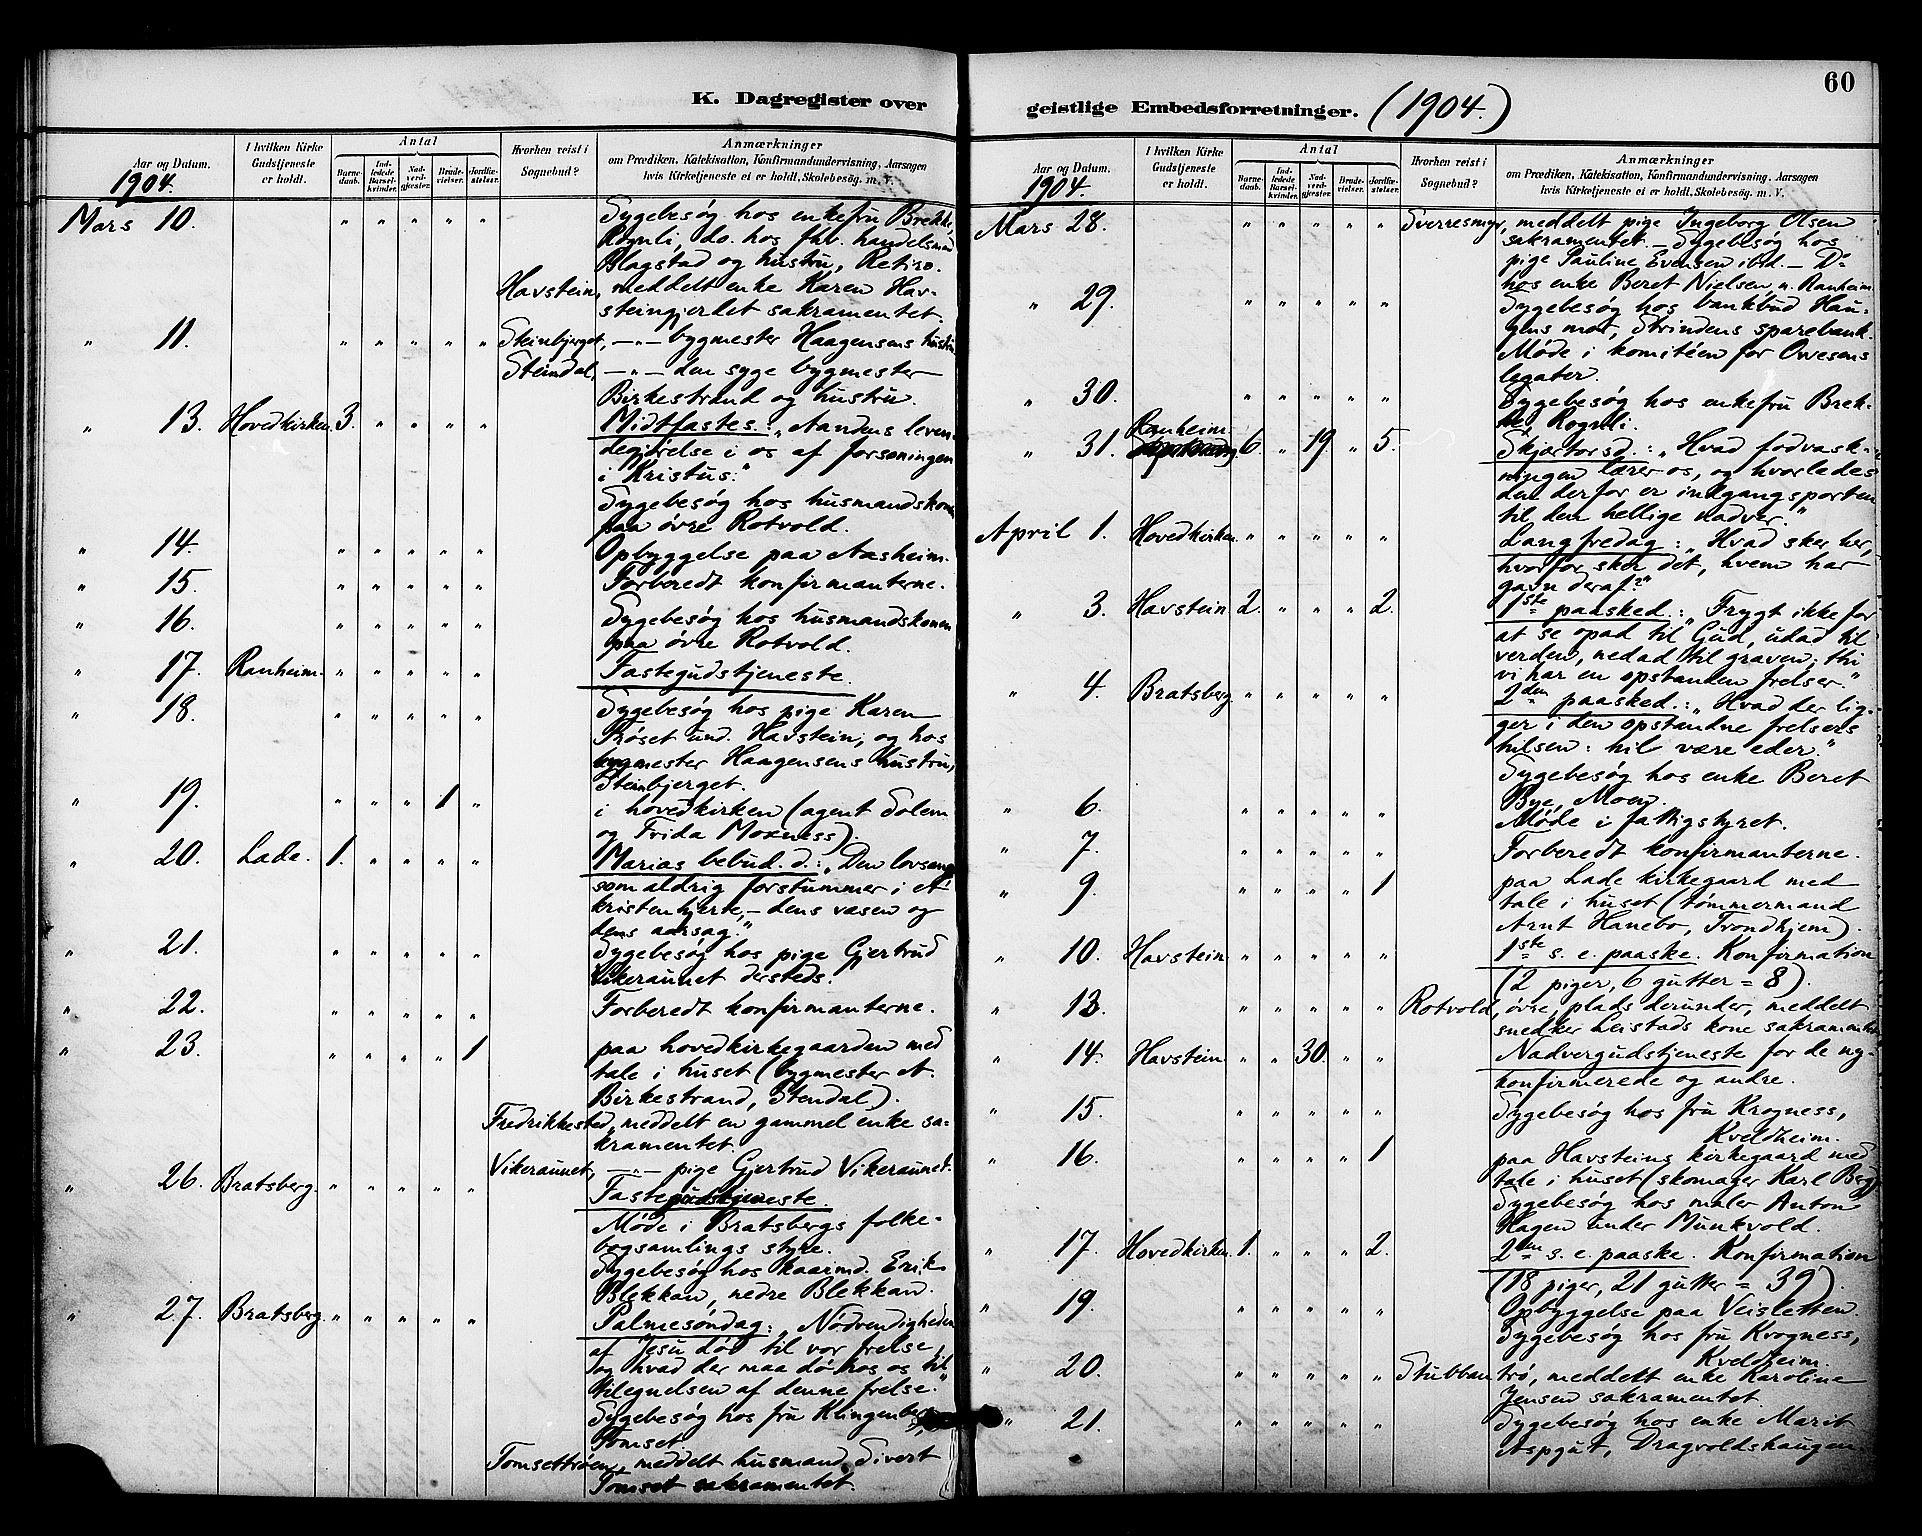 K. Dagregister over
Antal
Aar og Datum.
I hvilken Kirke Gudstjeneste er holdt.
Barnedaab.
Indledede Barselkvinder.
Nadverdgjester.
Brudevielser.
Jordfæstelser.
Hvorhen reist i Sognebud?
Anmærkninger
om Prædiken, Katekisation, Konfirmandundervisning, Aarsagen
hvis Kirketjeneste ei er holdt, Skolebesøg. m. v.
1904.
Mars 10. " " " " " Sygebesøg hos enkefru Brekke,
Rognli, do. hos fhv. handelsmand
Blagstad og hustru, Retiro.
Havstein, meddelt enke Karen Hav-
steingjerdet sakramentet.
" 11. " " " " " Steinbjerget, —"— bygmester Haagensens hustru
Steindal, —"— den syge bygmester
Birkestrand og hustru.
" 13. Hovedkirken 3. " " " " Midtfastes.: „Aandens leven-
degjörelse i os af forsoningen
i Kristus."
Sygebesøg hos husmandskonen
paa øvre Rotvold.
" 14. " " " " " Opbyggelse paa Aasheim.
" 15. " " " " " Forberedt konfirmanterne.
" 16. " " " " " Sygebesøg hos husmandskonen
paa øvre Rotvold.
" 17. Ranheim. " " " " " Fastegudstjeneste.
" 18. " " " " " Sygebesøg hos pige Karen
Trøset und. Havstein, og hos
bygmester Haagensens hustru,
Steinbjerget.
" 19. " " " 1 " i hovedkirken (agent Solem
og Frida Moxness).
" 20. Lade. 1. " " " " Marias bebud. d.: „Den lovsang
som aldrig forstummer i et
kristenhjerte, – dens væsen og
dens aarsag."
" 21. " " " " " Sygebesøg hos pige Gjertrud
Vikeraunet dersteds.
" 22. " " " " " Forberedt konfirmanterne.
" 23. " " " " 1 paa hovedkirkegaarden med
tale i huset (bygmester A.
Birkestrand, Stendal).
Fredrikkested, meddelt en gammel enke sa-
kramentet.
Vikeraunet, —"— pige Gjertrud Vikeraunet.
" 26. Bratsberg. " " " " " Fastegudstjeneste.
Møde i Bratsbergs folke-
bogsamlings styre.
Sygebesøg hos kaarmd. Erik
Blekkan, nedre Blekkan.
" 27. Bratsberg. " " " " " Palmesøndag: „Nødvendigheden
af Jesu død til vor frelse,
og hvad der maa dø hos os til
tilegnelsen af denne frelse."
Sygebesøg hos fru Klingenberg,
Tomset.
Tomsettrøen, meddelt husmand Sivert
Tomset sakramentet.
60
geistlige Embedsforretninger. (1904.)
Antal
Aar og Datum.
I hvilken Kirke Gudstjeneste er holdt.
Barnedaab.
Indledede Barselkvinder.
Nadverdgjester.
Brudevielser.
Jordfæstelser.
Hvorhen reist i Sognebud?
Anmærkninger
om Prædiken, Katekisation, Konfirmandundervisning, Aarsagen
hvis Kirketjeneste ei er holdt, Skolebesøg m. V.
1904.
Mars 28. " " " " " Sverresmyr, meddelt pige Ingeborg Olsen
sakramentet. – Sygebesøg hos
pige Pauline Evensen ibid. – Do
hos enke Beret Nielsen n. Ranheim.
" 29. " " " " " Sygebesøg hos bankbud Hau-
gens mor, Strindens sparebank.
Møde i komitéen for Owesens
legater.
" 30. " " " " " Sygebesøg hos enkefru Brek-
ke, Rognli.
" 31. Ranheim. 6. " 19. " 5. Skjærtorsd.: „Hvad fodvask-
ningen lærer os, og hvorledes
den derfor er indgangsporten
til den hellige nadver."
April 1. Hovedkirken. " " " " " Langfredag: „Hvad sker her,
hvorfor sker det, hvem har
gavn deraf?"
" 3. Havstein. 2. " " " 2. 1ste paasked.: „Frygt ikke for
at se opad til Gud, udad til
verden, nedad til graven; thi
vi har en opstanden frelser."
" 4. Bratsberg. " " " " " 2den paasked.: „Hvad der lig-
ger i den opstandne frelsers
hilsen: hil være eder."
Sygebesøg hos enke Beret
Bye, Moen.
" 6. " " " " " Møde i fattigstyret.
" 7. " " " " " Forberedt konfirmanterne.
" 9. " " " " 1 paa Lade kirkegaard med
tale i huset (tømmermand
Arnt Hanebo, Trondhjem).
" 10. Havstein. " " " " " 1ste s. e. paaske. Konfirmation
(2 piger, 6 gutter = 8).
" 13. " " " " " Rotvold, øvre, plads derunder, meddelt
snedker Leistads kone sakramentet.
" 14. Havstein. " " 30. " " Nadvergudstjeneste for de ny-
konfirmerede og andre.
" 15. " " " " " Sygebesøg hos fru Krogness,
Kveldheim.
" 16. " " " " 1 paa Havsteins kirkegaard med
tale i huset (skomager Karl Berg)
Sygebesøg hos maler Anton
Hagen under Munkvold.
" 17. Hovedkirken. 1. " " " 2. 2den s. e. paaske. Konfirmation
(18 piger, 21 gutter = 39).
" 19. " " " " " Opbyggelse paa Veisletten.
Sygebesøg hos fru Krogness,
Kveldheim.
" 20. " " " " " Stubban trø, meddelt enke Karoline
Jensen sakramentet.
" 21. " " " " " Sygebesøg hos enke Marit
Aspgut, Dragvoldshaugen.